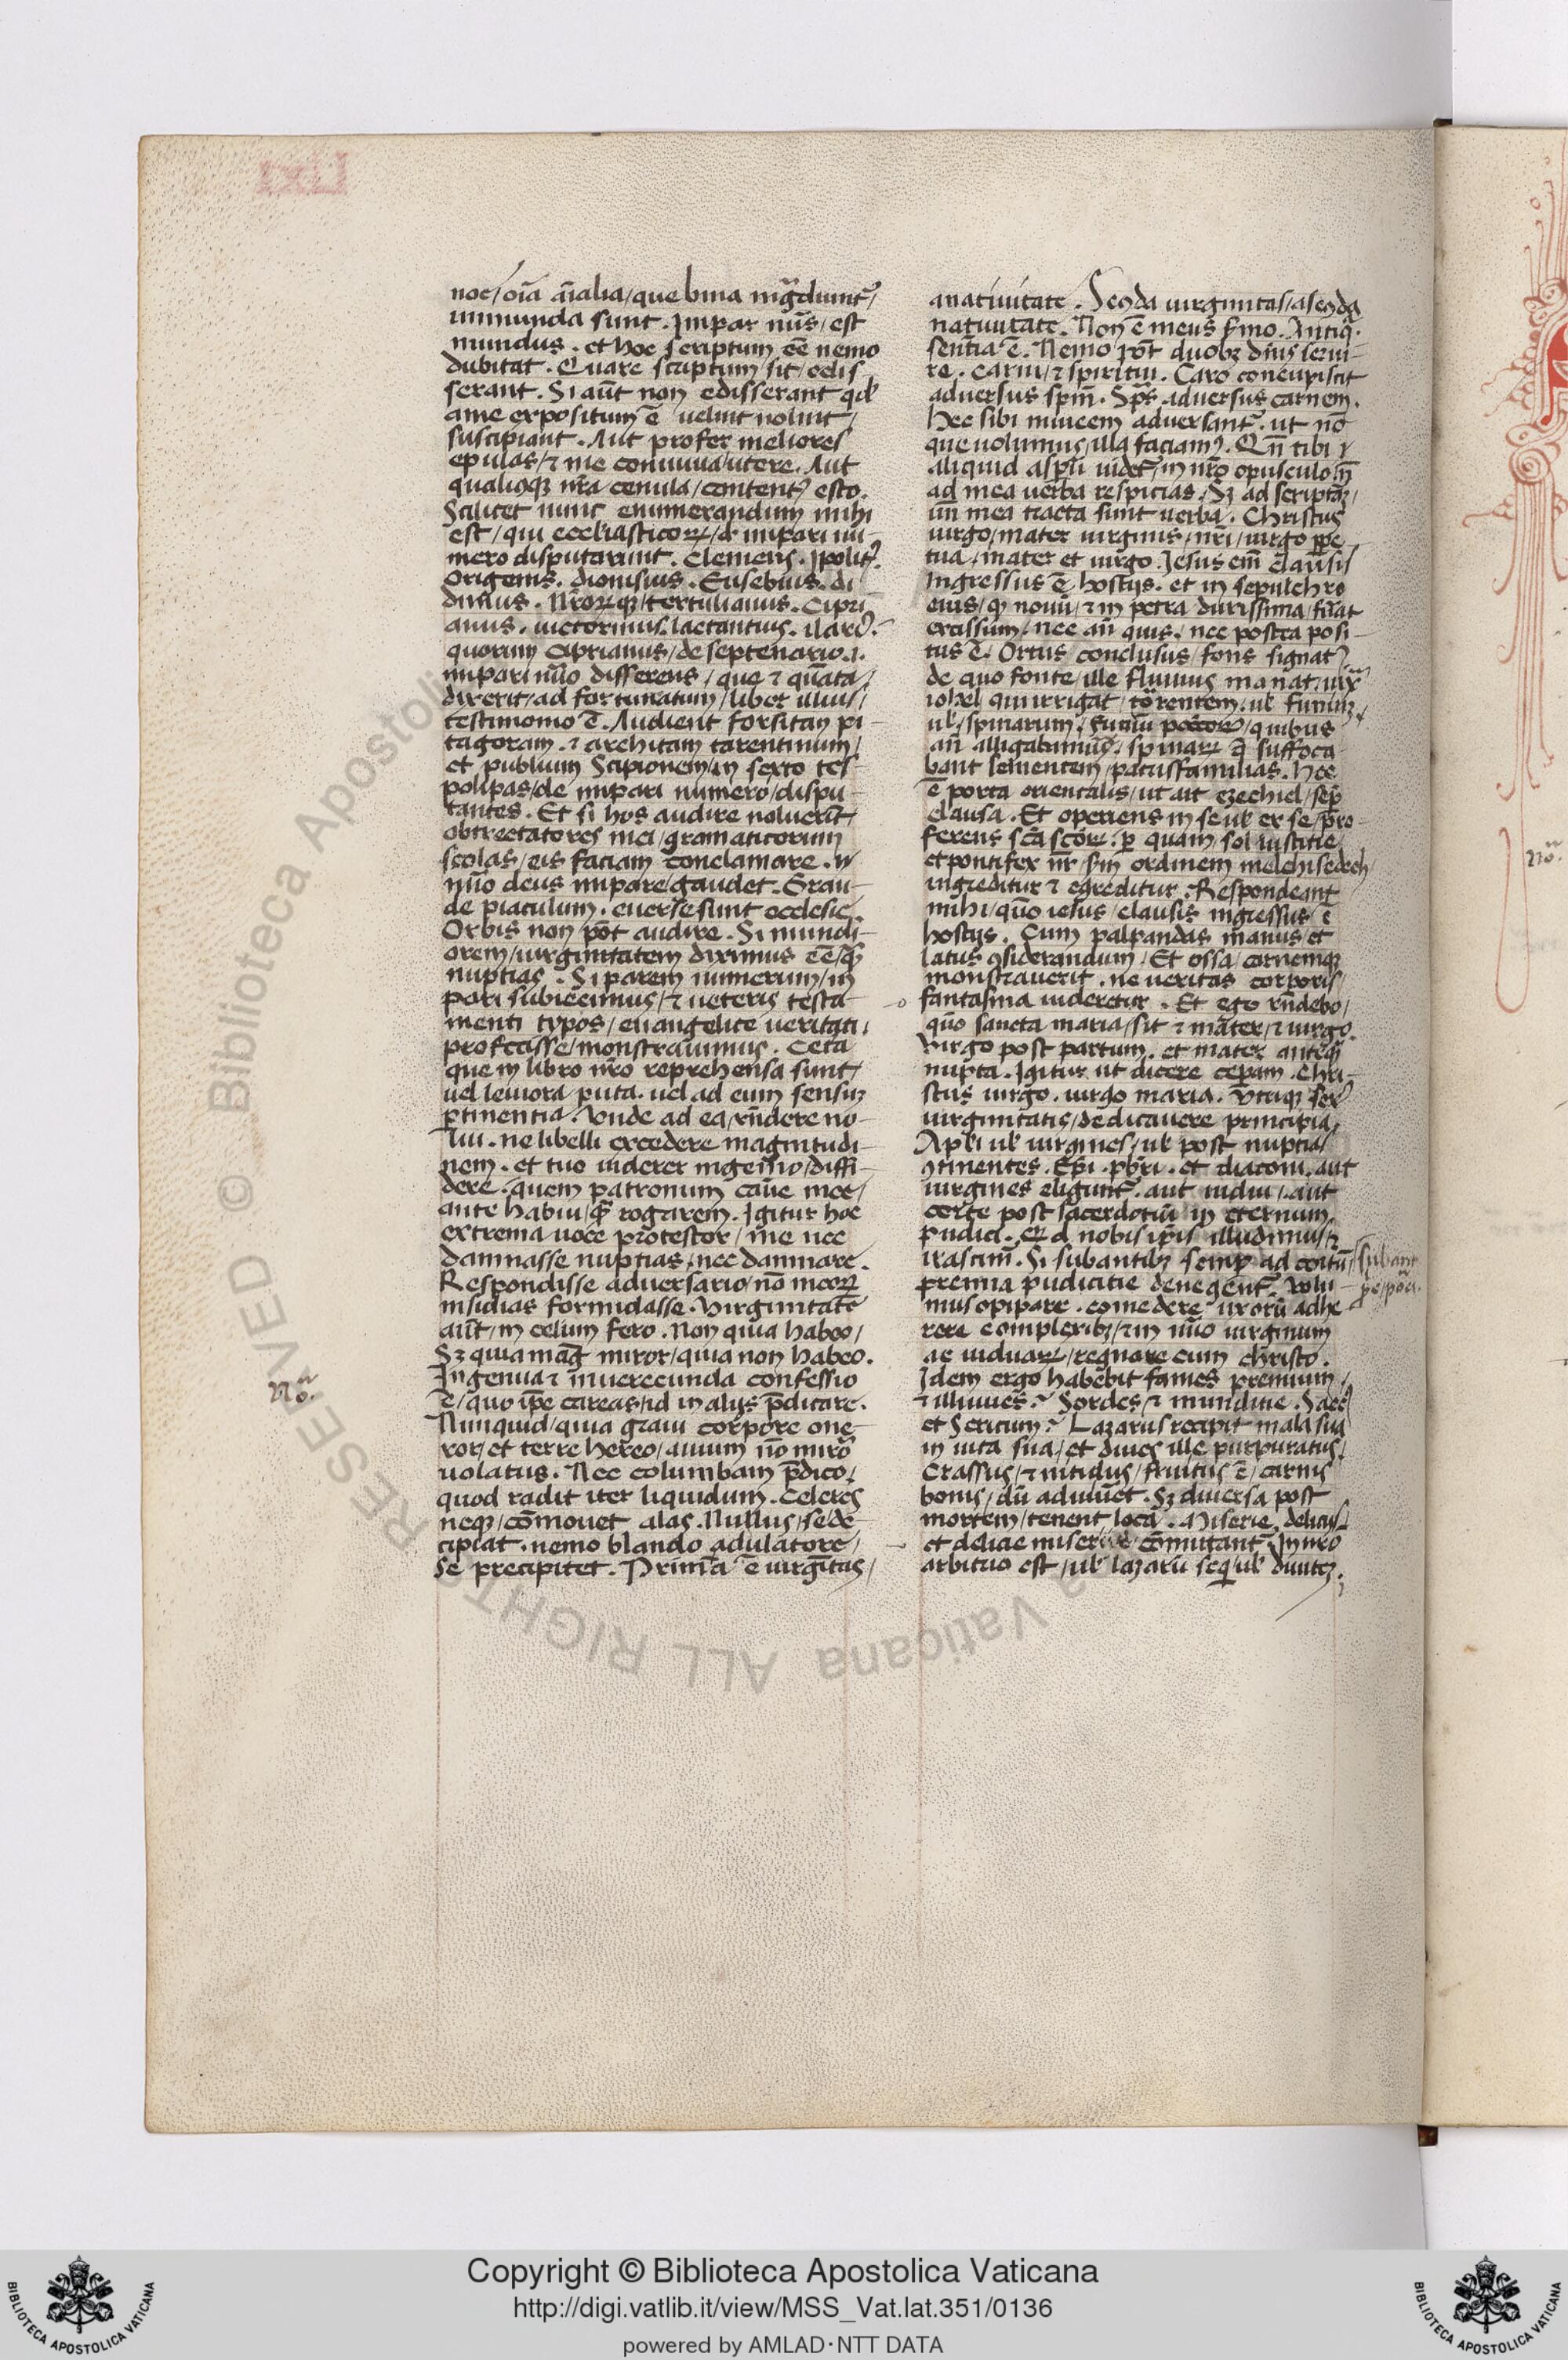 noe/oīa aīalia/que bina īgrediunt᷑/
immunda sunt. Impar nūs/est
mundus. et hoc scriptum eē nemo
dubitat. Quare scriptum/sit/edis
serant. Si aūt non edisserant qd̄
ame expositum ē uelint nolint/
suscipiant. Aut profer meliores
epulas/⁊ me conuiua/utere. Aut
qualiqꝫ nr̄a cenula/contentꝰ esto.
Scilicet nunc enumerandum mihi
est/qui eccl̄iasticoꝝ/d̄ impari nu
mero disputarunt. Clemens. Ipolitꝰ.
Origenis. dionisius. Eusebius. di
dimus. Nr̄oꝝqꝫ/tertulianus. Cipri
anus. uictorinus. lactantius. ilariꝰ.
quorum Ciprianus/de septenario .i.
impari nūo disserens/que ⁊ quāta/
dixerit/ad fortunatum/liber illius/
testimonio ē. Audient forsitan pi-
tagoram. ⁊ architam tarentinum/
et publium Scipionem/in sexto tes-
polipas/de impari numero/dispu-
tantes. Et si hos audire noluerīt/
obtrectatores mei/gramaticorum
scolas/eis faciam conclamare. N
nūo deus impare/gaudet. Gran-
de piaculum. euerse sunt ecclesie.
Orbis non pōt audire. Si mundi-
orem/uirginitatem diximus eē/qꝫ
nuptias. Si parem numerum/im
pari subiecimus/⁊ ueteris testa-
menti typos/euangelice ueritati/
profecisse/monstrauimus. Cetā
que in libro nr̄o reprehensa sunt/
uel leuiora puta. uel ad eum sensuꝫ
ꝑtinentia. Vnde ad ea/rn̄dere no-
lui. ne libelli excedere magnitudi-
nem. et tuo uiderer ingenio/diffi-
dere. quem patronum cause mee/
ante habui/qꝫ rogarem. Igitur hoc
extrema uoce protestor/me nec
damnasse nuptias/nec damnare.
Respondisse aduersario/nō meoꝝ
insidias formidasse. Virginitatē
aūt/in celum fero. Non quia habeo/
Sꝫ quia maḡ miror/quia non habeo.
Ingenua ⁊ inuerecunda confessio
ē/quo ip̄e careas/id in alijs p̄dicare.
Nunquid/quia graui corpore one-
ror/et terre hereo/auium nō miror
uolatus. Nec columbam p̄dico/
quod radit iter liquidum. Celeres
neqꝫ/cōmouet alas. Nullus/se de-
cipiat. nemo blando adulatore/
Se precipitet. Prima ē uirgītas/
No.
anatiuitate. Secōda uirginitas/a secōda
natiuitate. Non ē meus sermo. Antiq̄.
sentīa ē. Nemo pōt duobꝫ dnīs serui-
re. Carni/⁊ spiritui. Caro concupiscit
aduersus spm̄. Sps̄. aduersus carnem.
hec sibi inuicem aduersant᷑. ut nō
que uolumus/illa faciamꝰ. Qn̄ tibi
aliquid aspū uidet᷑/in nr̄o opusculo/n̄
ad mea uerba respicias. Sꝫ ad scripturā/
un̄ mea tracta sunt uerba. Christus
uirgo/mater uirginis/nr̄i/uirgo ꝑpe
tua/mater et uirgo. Iesus em̄ clausis
ingressus ē hostijs. et in sepulchro
eius/qꝫ nouū/⁊ in petra durissima/fuāt
excissum/nec añ quis. nec postea posi-
tus ē. Ortus conclusus/fons signatꝰ
de quo fonte/ille fluuius manat/iux̄
iohel qui irrigat/torrentem. ul̄ funiuꝫ/
ul̄/spinarum/funiū peccatoꝝ/quibus
añ alligabamur. spinaꝝ q̄ suffoca-
bant sementem/patrisfamilias. Hec
ē porta orientalis/ut ait ezechiel/sep̄
clausa. Et operiens in se ul̄ ex se/pro-
ferens scā scōꝝ. ꝑ quam/sol iustitie
et pontifex nr̄/sm̄ ordinem melchisedech/
ingreditur ⁊ egreditur. Respondeant
mihi/quō iesus/clausis ingressus ē
hostijs. Cum palpandas manus/et
latus ꝯsiderandum/Et ossa/carnemqꝫ
monstrauerit. ne ueritas corporis/
fantasma uideretur. Et ego rn̄debo/
quō sancta maria/sit ⁊ mater/⁊ uirgo.
Virgo post partum. et mater anteqꝫ
nupta. Igitur ut dicere ceperam. Chri-
stus uirgo. uirgo maria. Vtriqꝫ sexꝰ
uirginitatis/dedicauere principia/
Apl̄i ul̄ uirgines/ul̄ post nuptias
ꝯtinentes. Ep̄i. pbr̄i. et diaconi. aut
uirgines eligunt᷑. aut uidui. aut
certe post sacerdotiū in eternum
pudici. Qd nobis ip̄is illudimus/⁊
irascim᷑. Si subantibꝫ semꝑ ad coitū/
premia pudicitie denegent᷑. Volu-
mus opipare. comedere uxorū adhe
rere complexibꝫ/⁊ in nūo uirginum
ac uiduaꝝ/regnare cum christo.
Idem ergo habebit fames premium/
⁊ illuuies? Sordes/⁊ munditie. Saccꝰ
et Sericum? Lazarus recipit mala sua
in uita sua/et diues ille purpuratus/
Crassus/⁊ nitidus/fruitus ē/carnis
bonis/dū aduiuēt. Sꝫ diuersa post
mortem/tenent loca. Miserie delicijs/
et delicie miserijs cōmutant᷑. In nr̄o
arbitrio est/ul̄ lazarū sequi/ul̄ diuitē.
subant
No.
Copyright © Biblioteca Apostolica Vaticana
http://digi.vatlib.it/view/MSS_Vat.lat.351/0136
powered by AMLAD·NTT DATA
BIBLIOTECA APOSTOLICA VATICANA
BIBLIOTECA APOSTOLICA VATICANA
© Biblioteca Apostolica Vaticana ALL RIGHTS RESERVED